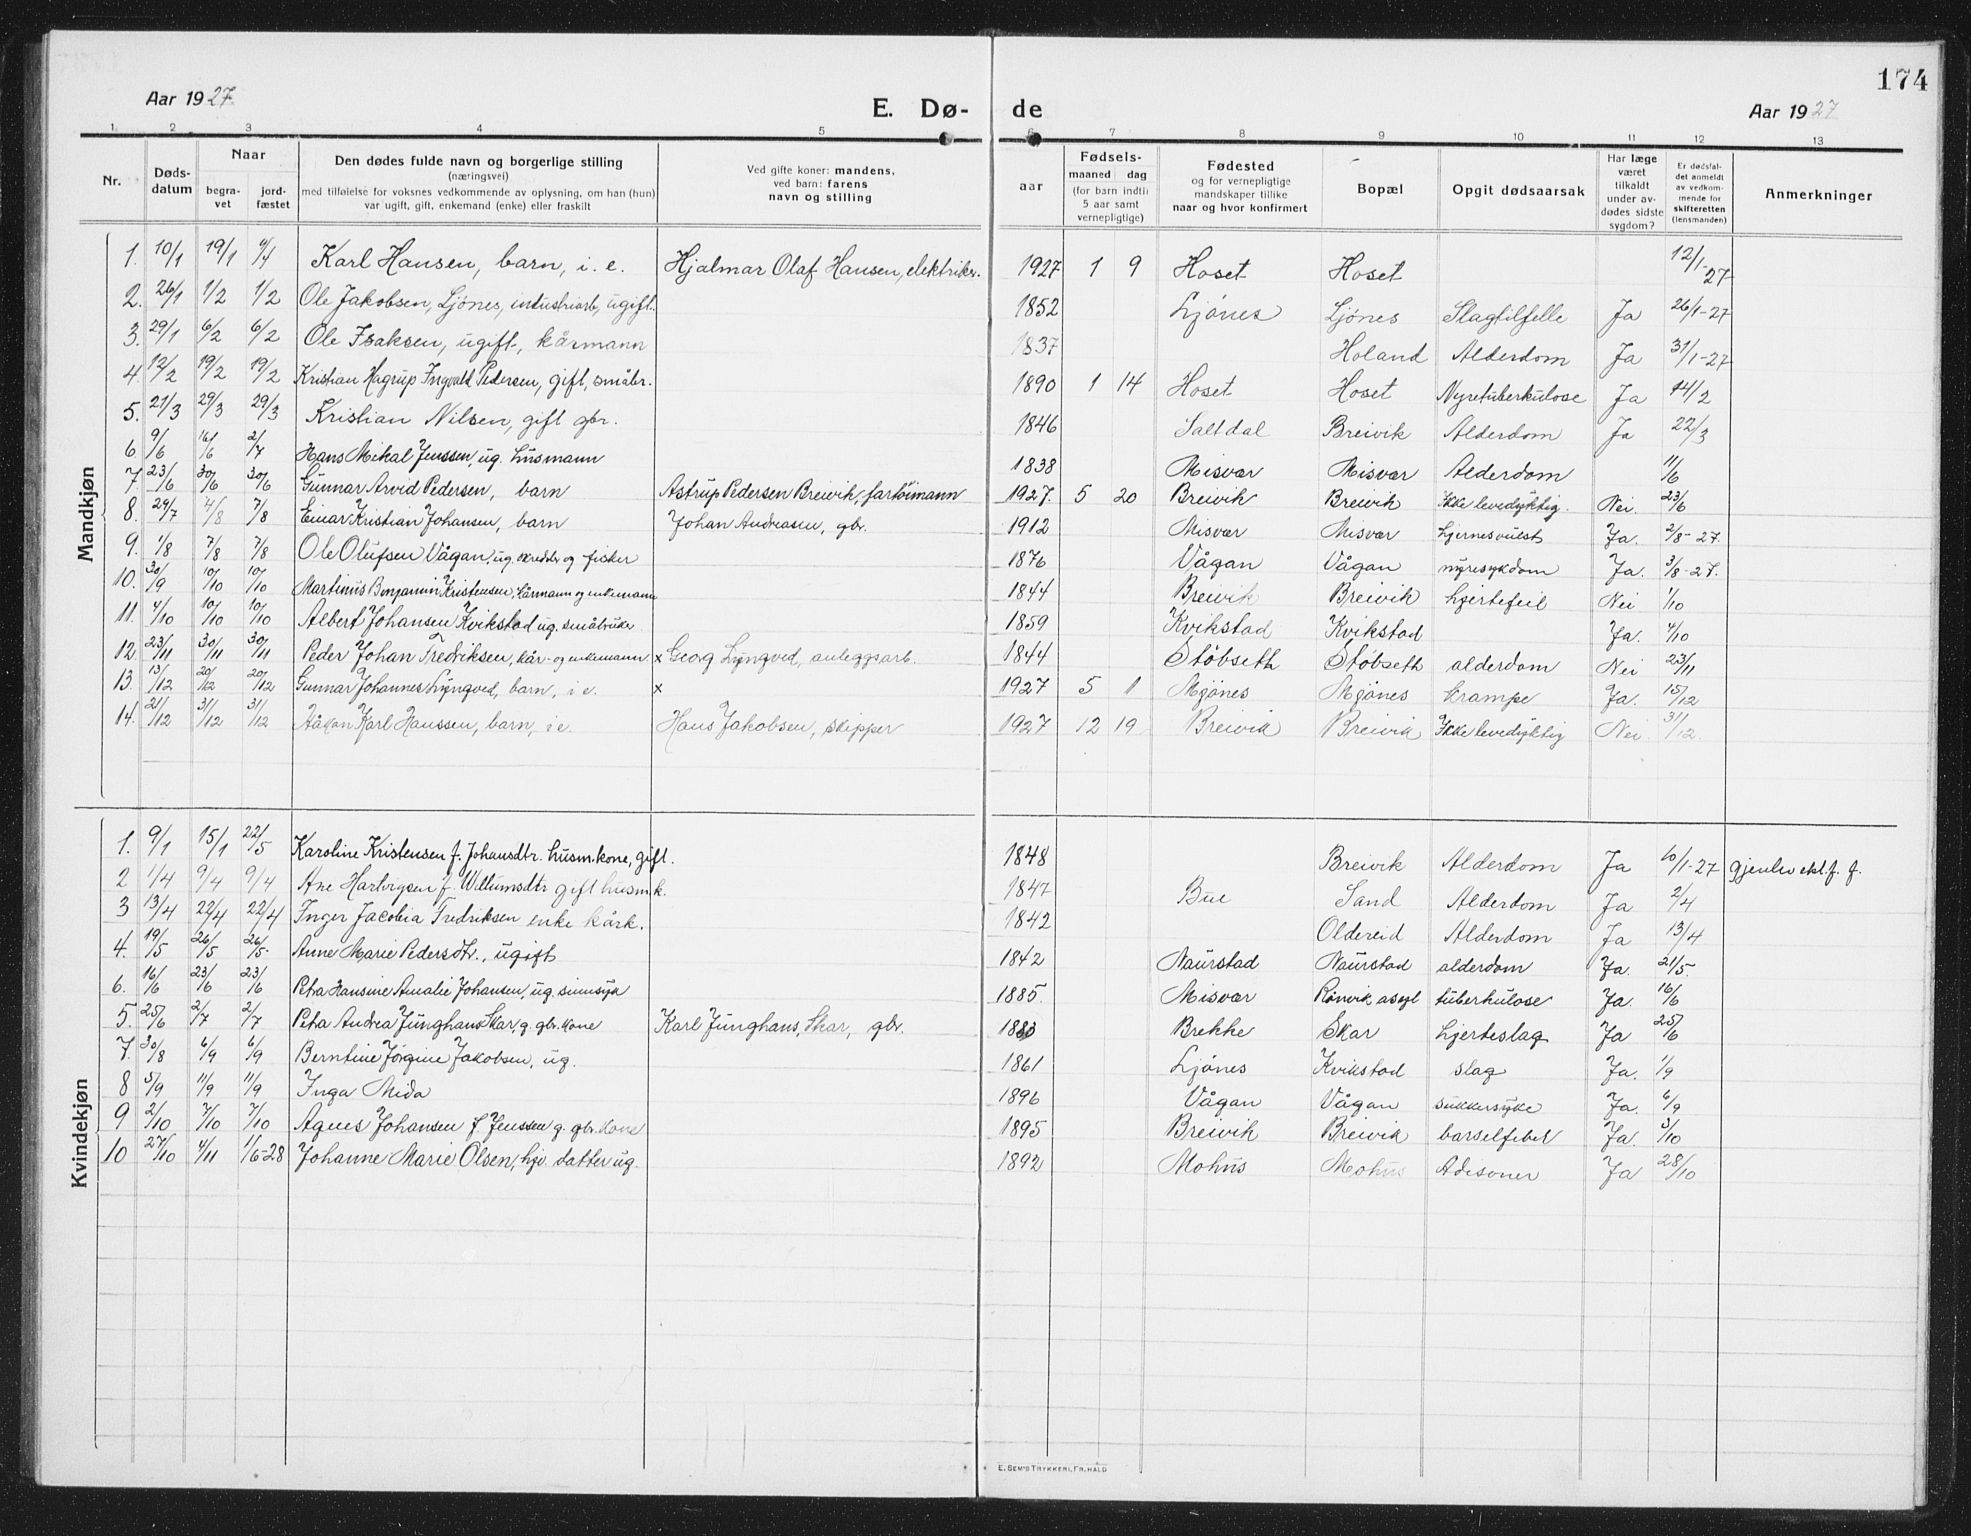 174
Aar 1927. E. Dø- de Aar 1927
1. 2 3 4 5 6 7 8 9 10 11 12 13
Nr. Døds-datum Naar begra-vet jord-fæstet Den dødes fulde navn og borgerlige stilling (næringsvei) med tilføielse for voksnes vedkommende av oplysning, om han (hun) var ugift, gift, enkemand (enke) eller fraskilt Ved gifte koner: mandens, ved barn: farens navn og stilling aar Fødsels- maaned dag (for barn indtil 5 aar samt vernepligtige) Fødested og for vernepligtige mandskaper tillike naar og hvor konfirmert Bopæl Opgit dødsaarsak Har læge været tilkaldt under av-dødes sidste sygdom? Er dødsfal-det anmeldt av vedkom-mende for skifteretten (lensmanden) Anmerkninger
Mandkjøn
1. 10/1 19/1 4/4 Karl Hansen, barn, i. e. Hjalmar Olaf Hansen, elektriker. 1927 1 9 Hoset Hoset 12/1-27
2. 26/1 1/2 1/2 Ole Jakobsen, Ljönes, industriarb, ugift. 1852 Ljönes Ljönes Slagtilfelle Ja 26/1-27
3. 29/1 6/2 6/2 Ole Isaksen, ugift, kårmann 1837 Holand Alderdom Ja 31/1-27
4. 12/2 19/2 19/2 Kristian Hagrup Ingvald Pedersen, gift, småbr. 1890 1 14 Hoset Hoset Nyretuberkulose Ja 14/2
5. 21/3 29/3 29/3 Kristian Nilsen, gift gbr. 1846 Saltdal Breivik Alderdom Ja 22/3
6. 9/6 16/6 2/7 Hans Mikal Jenssen, ug. husmann 1838 Misvær Misvær Alderdom 11/6
7. 23/6 30/6 30/6 Gunnar Arvid Pedersen, barn Astrup Pedersen Breivik, fartöimann 1927. 5 20 Breivik Breivik Ikke levedyktig. Nei. 23/6
8. 29/7 4/8 7/8 Einar Kristian Johansen, barn Johan Andreasen, gbr. 1912 Misvær Misvær hjernesvulst Ja. 2/8-27.
9. 1/8 7/8 7/8 Ole Olufsen Vågan, ug. skredder og fisker 1876 Vågan Vågan nyresykdom Ja. 3/8-27.
10. 30/9 10/10 10/10 Martinus Benjamin Kristensen, kårmann og enkemann 1844 Breivik Breivik hjertefeil Nei 1/10
11. 4/10 10/10 10/10 Albert Johansen Kvikstad ug. småbruker 1859 Kvikstad Kvikstad Ja. 4/10
12. 23/11 30/11 30/11 Peder Johan Fredriksen, kår- og enkemann x Georg Lyngved, anleggsarb. 1844 Stöbseth Stöbseth alderdom Nei 23/11
13. 13/12 20/12 20/12 Gunnar Johannes Lyngved, barn, i e. x 1927 5 1 Mjönes Mjönes krampe Ja. 15/12
14. 21/12 31/12 31/12 Håkon Karl Hanssen, barn, i e. Hans Jakobsen, skipper 1927 12 19 Breivik Breivik Ikke levedyktig Nei 31/12.
Kvindekjøn
1. 9/1 15/1 22/5 Karoline Kristensen f. Johansdtr. husm.kone, gift. 1848 Breivik Alderdom Ja 10/1-27 gjenlev ekt.f. f.
2 1/4 9/4 9/4 Ane Hartvigsen f. Willumsdtr gift husm.k. 1847 Bue Sand Alderdom Ja 2/4
3 13/4 22/4 22/4 Inger Jacobia Fredriksen enke kårk. 1842 Oldereid Alderdom Ja 13/4
4. 19/5 26/5 26/5- Anne Marie Pedersdtr., ugift 1842 Naurstad Naurstad alderdom Ja. 21/5.
6. 16/6 23/6 23/6 Petra Hansine Amalie Johansen, ug. sinnsyk 1885. Misvær Rönvik asyl tuberkulose Ja. 16/6
5. 25/6 2/7 2/7 Petra Andrea Junghans Skar, g. gbr. kone Karl Junghans, Skar, gbr. 1883 Brekke Skar hjerteslag Ja 25/6
7. 30/8 6/9 6/9 Berntine Jörgine Jakobsen, ug. 1861 Ljönes Kvikstad slag Ja. 1/9
8 5/9 11/9 11/9 Inga Mida 1896 Vågan Vågan sukkersyke Ja. 6/9
9 2/10 7/10 7/10 Agnes Johansen f Jenssen g. gbr. kone 1895 Breivik Breivik barselfeber Ja. 3/10
10 27/10 4/11 1/6-28 Johanne Marie Olsen, hjv. datter ug. 1892 Mohus Mohus Adisoner Ja 28/10
E. SEM'S TRYKKERI, FR.HALD